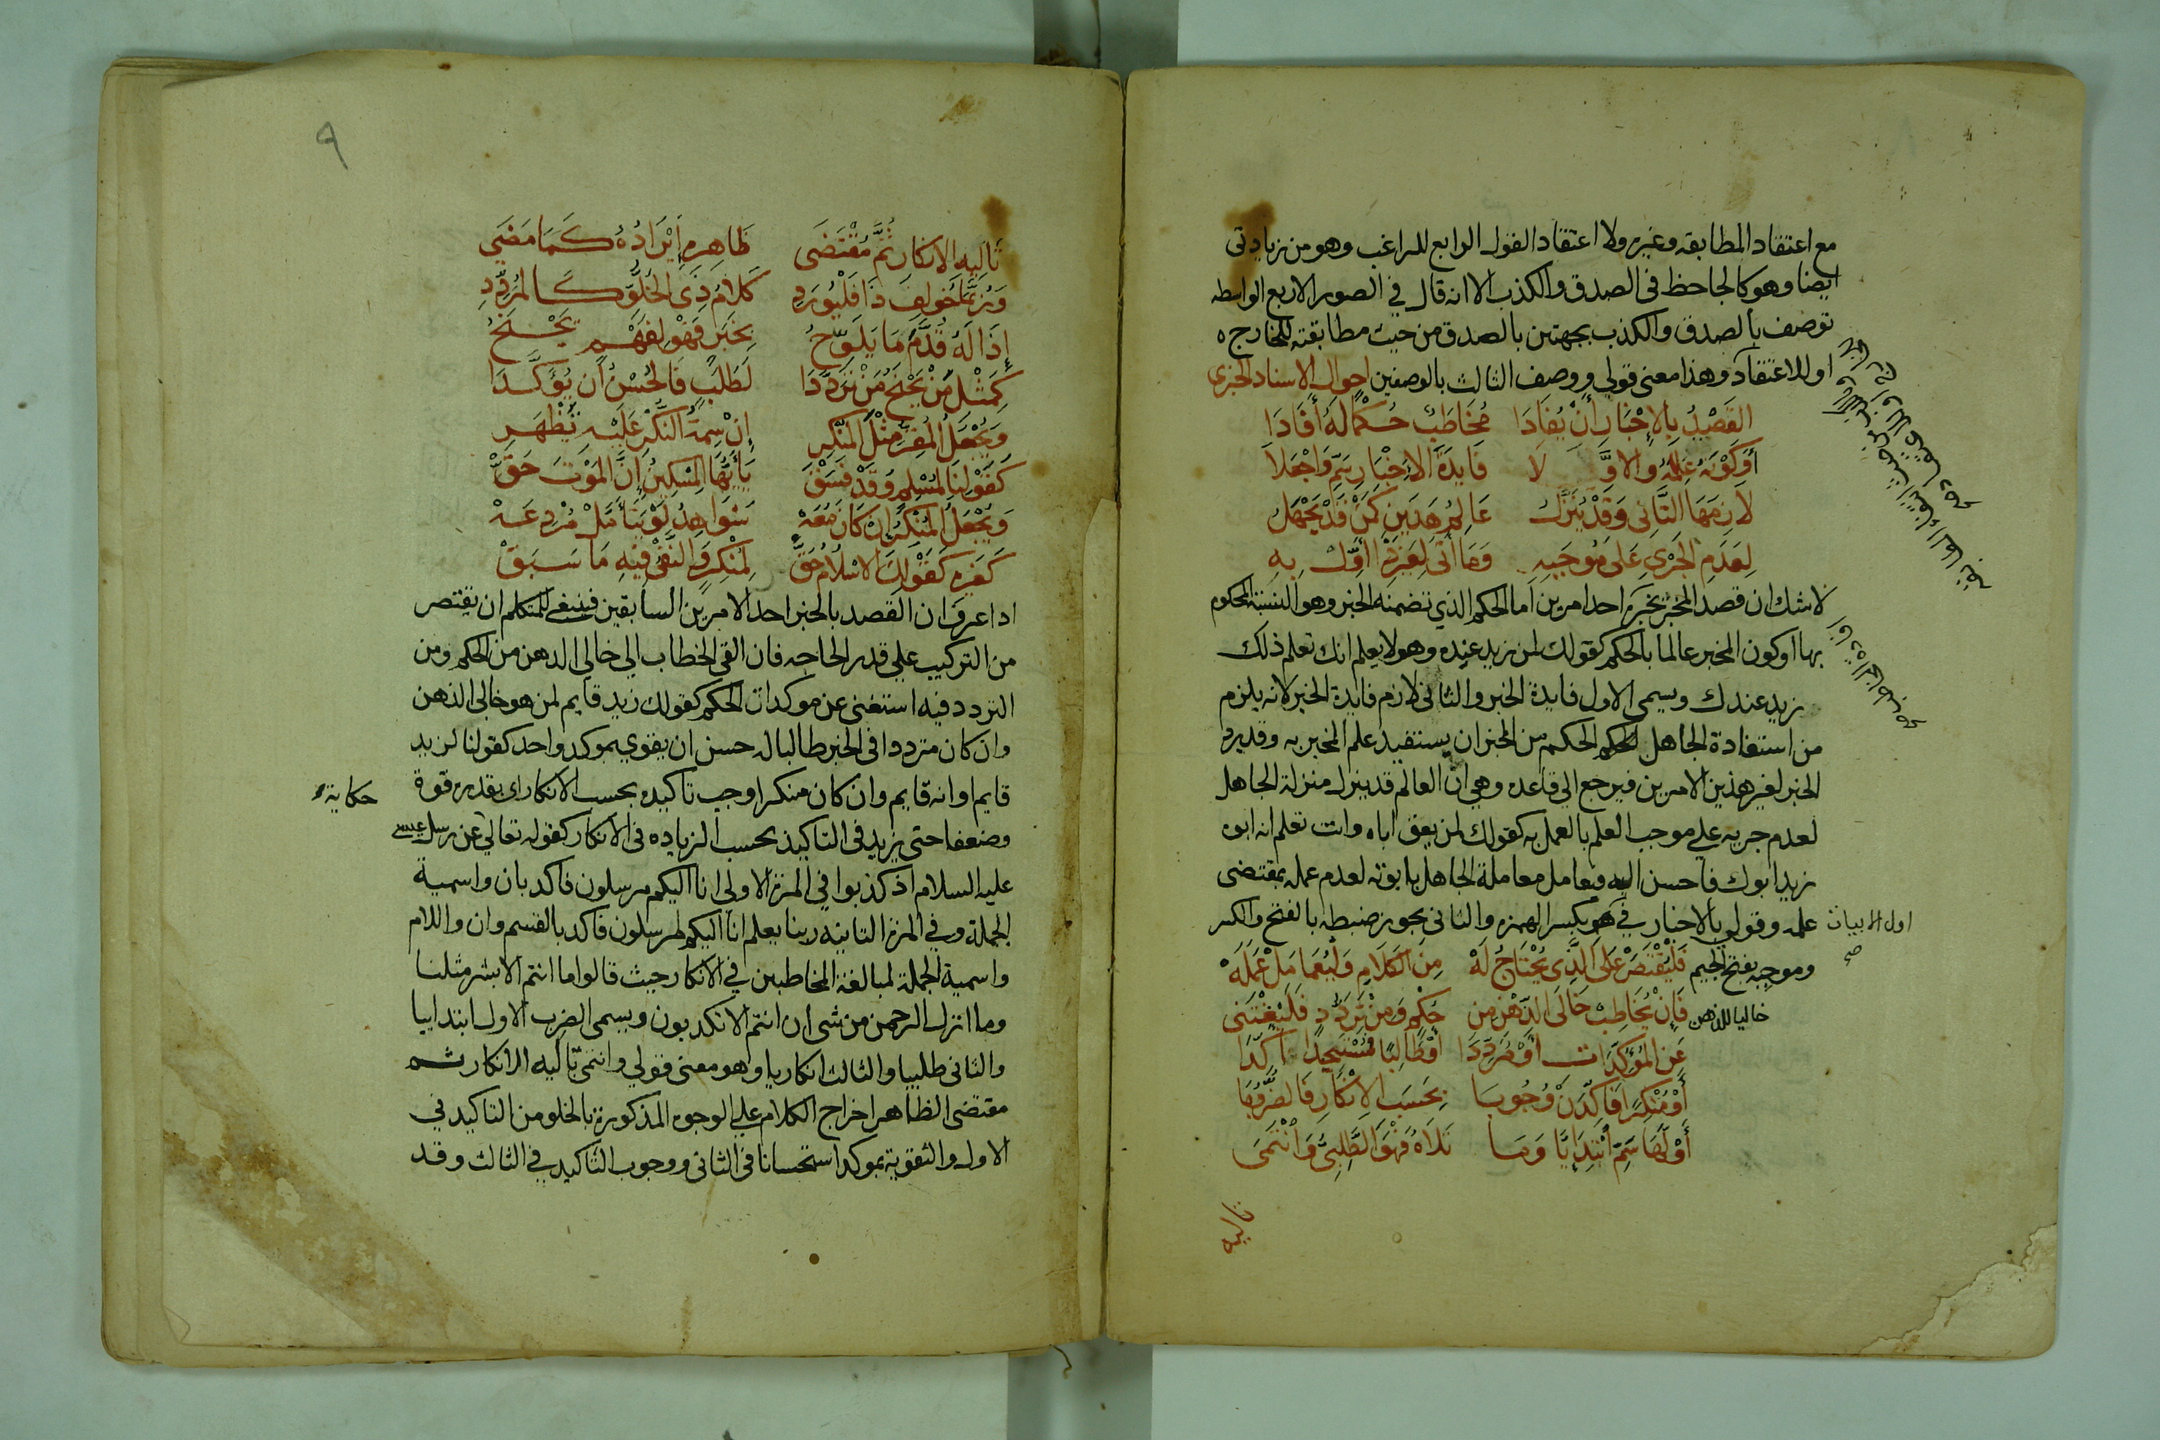 مع اعتقاد المطابقه وغيره ولا اعتقاد القول الرابع للراغب وهو من زيادتى
ايضا وهو كالجاحظ فى الصدق والكذب الا انه قال في الصور الاربع الواسطه
توصف بالصدق والكذب بجهتين بالصدق من حيث مطابقته للخارج
او للاعتقاد وهذا معنى قولي ووصف الثالث بالوصفين احوال الاسناد الخبرى
القَصْدُ بِالإِخْبَارِ أَنْ يُفَادَا مُخَاطَبٌ حُكْمًا لَهُ أَفَادَا
أَوْ كَوْنَهُ عَلِمَهُ وَالاوَّلا فَايِدَةَ الاخْبَارِ سَمِّ وَاجْعَلاَ
لاَزِمَهَا الثَّانِى وَقَدْ يُنَزَّلُ عَالِمُ هَذَيْنِ كَمَنْ قَدْ يَجْهَلُ
لِعَدَمِ الجَرْيِ عَلَى مُوجَبِهِ وَمَا أَتَى لِغَيْرِ ذَا أَوِّلْ بِهِ
لا شك ان قصد المخبر بخبره احد امرين اما الحكم الذي تضمنه الخبر وهو النسبة المحكوم
بها او كون المخبر عالما بالحكم كقولك لمن زيد عنده وهو لا يعلم انك تعلم ذلك
زيد عندك ويسمى الاول فايدة الخبر والثانى لازم فايدة الخبر لانه يلزم
من استفادة الجاهل الحكم من المخبر ان يستفيد علم المخبر به وقد يرد
الخبر لغير هذين الامرين فيرجع الي قاعده وهي ان العالم قد ينزل منزلة الجاهل
لعدم جريه علي موجب العلم بالعمل به كقولك لمن يعق اباه وانت تعلم انه ابوه
زيد ابوك فاحسن اليه فيعامل معاملة الجاهل بابوته لعدم عمله بمقتضى
علمه وقولي بالاخبار في هو بكسر الهمزه والثانى يجوز ضبطه بالفتح والكسر
اول الابيات
صح
وموجبه بفتح الجيم فَلْيُقْتَصَرْ عَلَى الَّذِى يُحْتَاجُ لَهْ مِنَ الكَلاَمِ وَلْيُعَامَلْ عَمَلَهْ
خاليا للذهن فَإِنْ يُخَاطِبْ خَالِىَ الذِّهْنِ مِنِ حُكْمٍ وَمِنْ تَرَدُّدٍ فَلْيَغْتَنِى
عَنِ المُؤَكِّدَاتِ أَوْ مُرَدِّدَا أَوْ طَالِبًا فَمُسْتَجِيدًا اَكِّدَا
أَوْ مُنْكِرًا فَأَكِّدَنْ وُجُوبَا بِحَسَبِ الاِنْكَارِ فَالضُّرُوبَا
أَوَّلَهَا سَمِّ ابْتِدَايِيًّا وَمَا تَلاَهُ فَهْوَ الطَّلَبِيُّ وَانْتَمَى
تاليه
٩
تَالِيهِ الانكَارِ ثُمَّ مُقْتَضَى ظَاهِرِهِ إيْرَادُهُ كَمَا مَضَى
وَرُبَّمَا خُولِفَ ذَا فَلْيُورَدِ كَلاَمُ ذِى الخُلُوِّ كَالمُرَدِّدِ
إِذَا لَهُ قُدِّمَ مَا يَلَوِّحُ بِخَبَرٍ فَهْوَ لِفَهْمٍ يَجْنَحُ
كَمِثْلِ مَنْ يَجْنَحُ مَنْ تَرَدَّدَا لَطَلَبٍ فَالحُسْنُ أَن يُؤَكَّدَا
وَيُجْعَلُ المُقِرُّ مِثْلَ المُنْكِرِ إِنْ سِمَةُ النُّكْرِ عَلَيْهِ تَظْهَرِ
كَقَوْلِنَا لِمُسْلِمٍ وَقَدْ فَسَقْ يَأَيُّهَا المِسْكِينُ إِنَّ المَوْتَ حَقْ
وَيُجْعَلُ المُنْكِرُ إِنْ كَانَ مَعَهْ شَوَاهِدُ لَوْ يَتَأَمَّلْ مُرْدِعَهْ
كَغَيْرِهِ كَقَوْلِكَ الاسْلاَمُ حَقْ لِمُنْكِرٍ وَالنَّفْىُ فِيهِ مَا سَبَقْ
اذا عرف ان القصد بالخبر احد الامرين السابقين فينبغي للمتكلم ان يقتصر
من التركيب علي قدر الحاجه فان القى الخطاب الي خالي الذهن من الحكم ومن
التردد فيه استغنى عن موكدات الحكم كقولك زيد قايم لمن هو خالى الذهن
وان كان مترددا فى الخبر طالبا له حسن ان يقوي بموكد واحد كقولنا لزيد
قايم او انه قايم وان كان منكرا وجب تاكيده بحسب الانكار اى بقدره قوة
حكاية
وضعفا حتى يزيد فى التاكيد بحسب الزياده فى الانكار كقوله تعالي عن رسل عيسى
عليه السلام اذ كذبوا في المرة الاولي انا اليكم مرسلون فاكد بان واسمية
الجملة وفي المرة الثانيه ربنا يعلم انا اليكم لمرسلون فاكد بالقسم وان واللام
واسمية الجملة لمبالغة المخاطبين في الانكار حيث قالوا ما انتم الا بشر مثلنا
وما انزل الرحمن من شى ان انتم الا تكذبون ويسمى الضرب الاول ابتداييا
والثانى طلبيا والثالث انكاريا وهو معنى قولي وانتمى تاليه الانكار ثم
مقتضى الظاهر اخراج الكلام علي الوجوه المذكورة بالخلو من التاكيد في
الاول والتقوية بموكد استحسانا فى الثانى ووجوب التاكيد في الثالث وقد